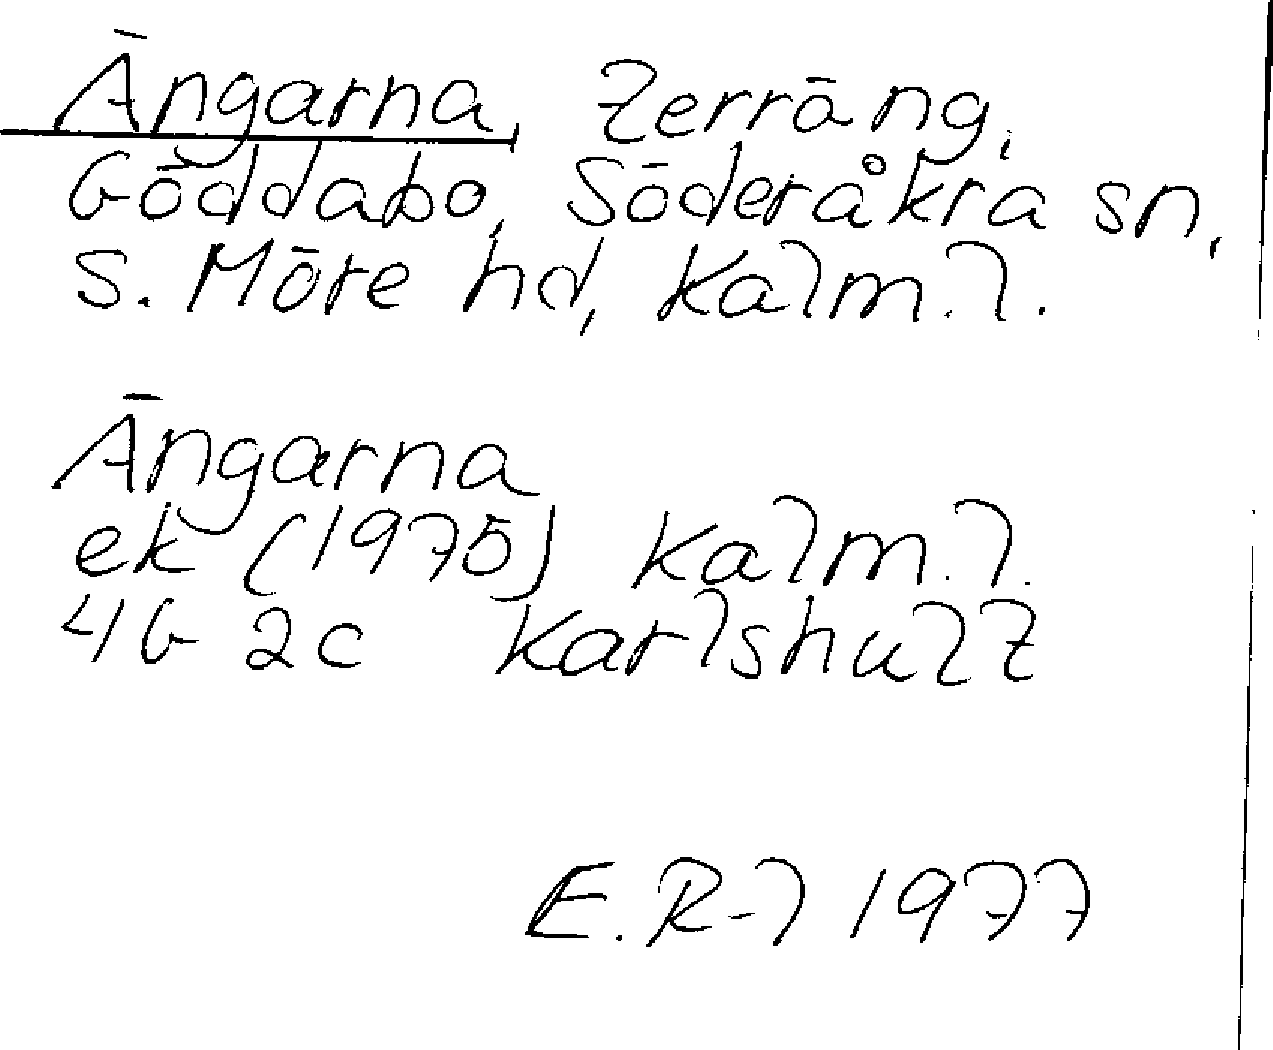 Ängarna, terräng,
Göddabo, Söderåkra sn,
S. Möre hd, Kalm. l.
Ängarna
ek (1975) Kalm. l.
4G 2c Karlshult
E. R-l 1977